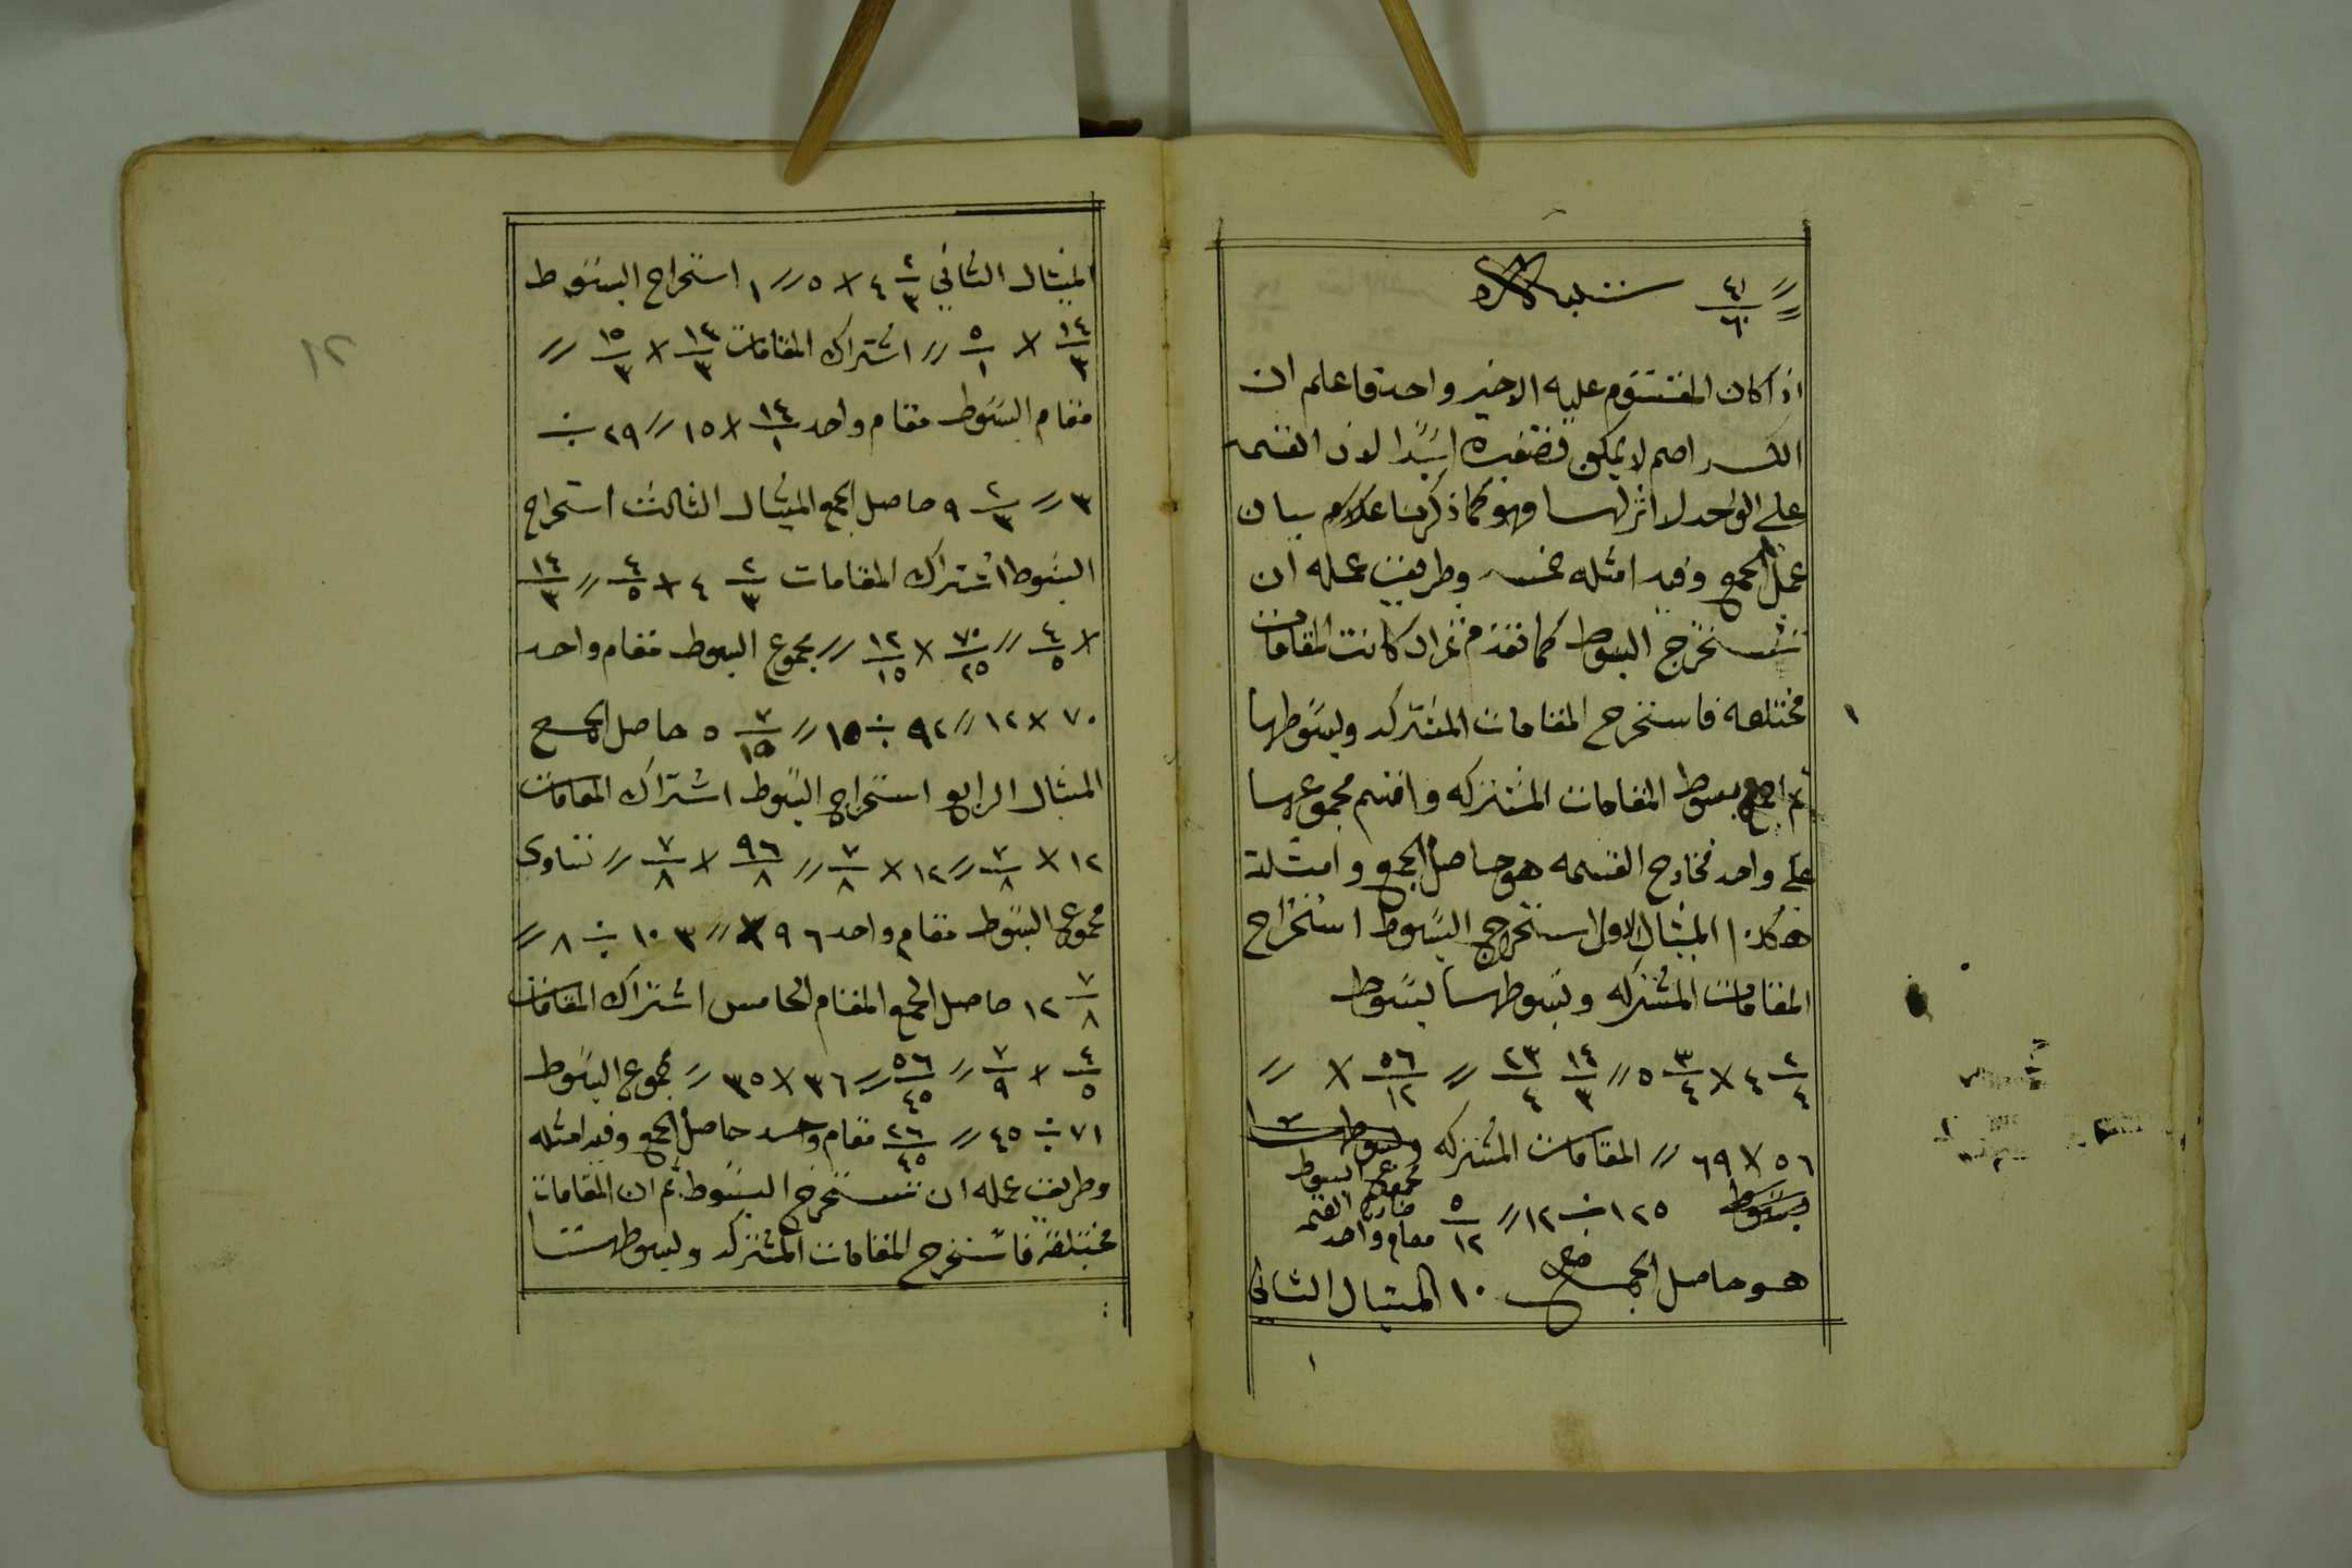 // = ٤١/٦٠ تنبيه
اذا كان المقسوم عليه الاخير واحد فاعلم ان
الكسر اصم لا يمكن ابدا لان القسمه
على الواحد لا اثر لها وهو كما ذكرنا بيان
عمل الجمع وفيه امثله خمسه وطريقت عمله ان
تستخرج البسوط كما تقدم كانت المقامات
مختلفه فاستخرج المقامات المشتركه وبسوطها
ثم اجمع بسوط المقامات المشتركه واقسم مجموعها
على واحد فخارج القسمه هو حاصل الجمع وامثلة
هكذا المثال الاول استخرج البسوط استخراج
المقامات المشتركه وبسوطها بسوط
٢/٤ ٤ × ٣/٤ ٥ // ١٤/٣ ٢٣/٤ // ٥٦/١٢ × //
٥٦ × ٦٩ // المقامات المشتركه وبسوطها
مجموع البسوط
بسوط ١٢٥ ÷ ١٢ // ٥/١٢ خارج القسمه
مقام واحد
هو حاصل الجمع ١٠ المثال الثاني
١
١
١٢
المثال الثاني ٢/٣ ٤ × ٥ // ١ استخراج البسوط
١٤/٣ × ٥/١ // اشتراك المقامات ١٤/٣ × ١٥/٣ //
مقام البسوط مقام واحد ١٤/١ × ١٥ // ٢٩ ÷
٣ // ٢/٣ ٩ حاصل الجمع المثال الثالث استخراج
البسوط اشتراك المقامات ٢/٣ ٤ × ٤/٥ // ١٤/٣
× ٤/٥ // ٧٠/٢٥ × ١٢/١٥ // مجموع البسوط مقام واحد
٧٠ × ١٢ // ٩٢ ÷ ١٥ // ٧/١٥ ٥ حاصل الجمع
المثال الرابع استخراج البسوط اشتراك المقامات
١٢ × ٧/٨ // ١٢ × ٧/٨ // ٩٦/٨ × ٧/٨ // تساوى
مجموع البسوط مقام واحد ٩٦ × // ١٠٣ ÷ ٨ //
٧/٨ ١٢ حاصل الجمع المقام الخامس اشتراك المقامات
٤/٥ × ٧/٩ // ٥٦/٤٥ // ٣٦ × ٣٥ // مجموع البسوط
٧١ ÷ ٤٥ // ٢٦/٤٥ مقام واحد حاصل الجمع وفيه امثله
وطريقت عمله ان تستخرج البسوط ثم ان المقامات
مختلفة فاستخرج المقامات المشتركه وبسوطها